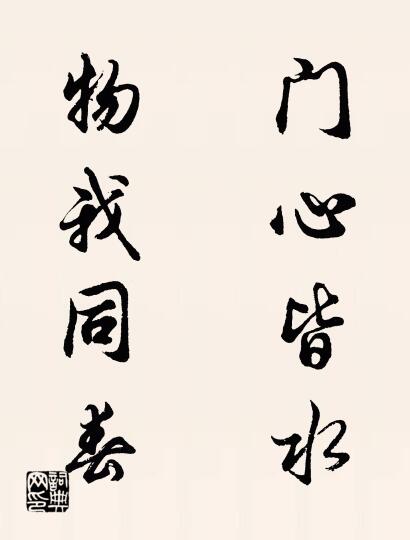 门心皆水
物我同春
詞典网印